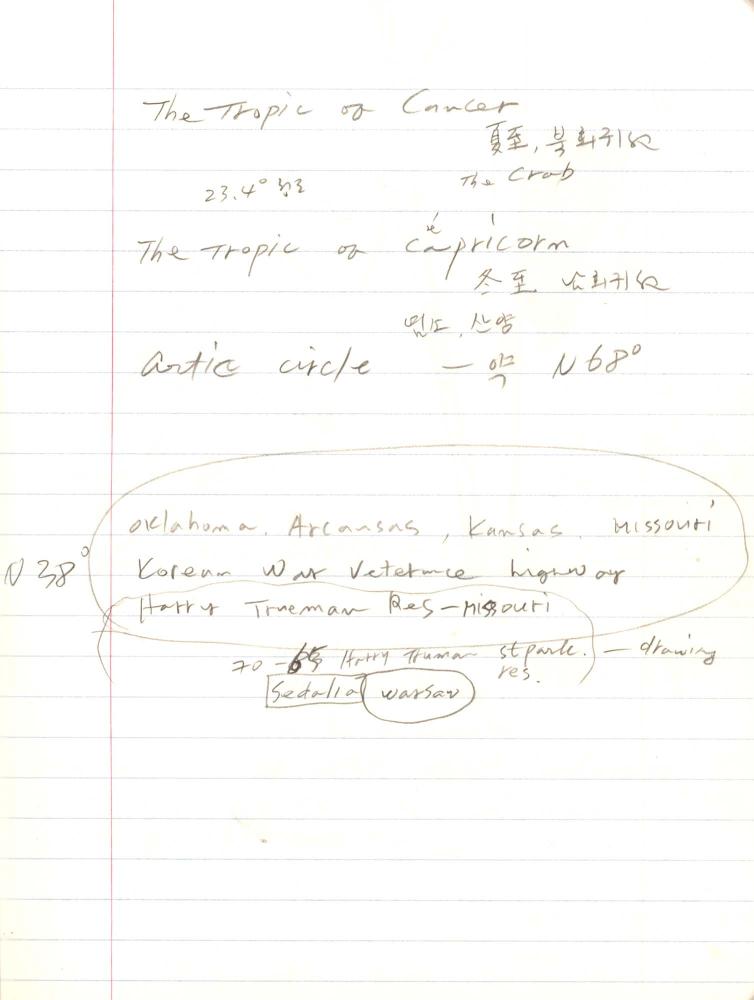 The Tropic of Cancer
夏至, 북회귀선
The Crab
23.4° 정도
é
The Tropic of Capricorn
冬至 남회귀선
염소, 산양
Artic circle — 약 N 68°
Oklahoma. Arcansas, Kansas. Missouri
N 38° Korean War Veterance highway
Harry Trueman Res-Missouri
70 - 65 Harry Truman st park. — drawing
res.
Sedalia warsaw